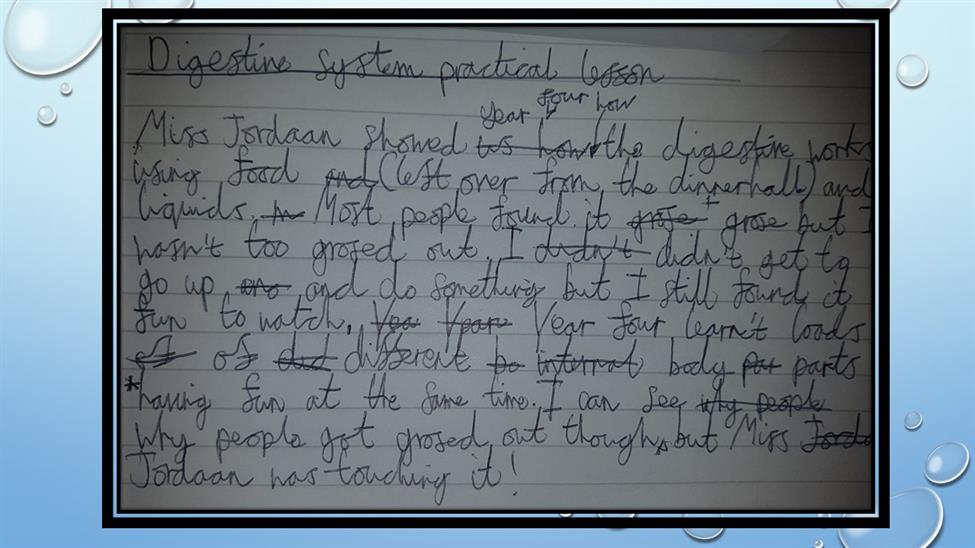 Digestive system practical lesson
year four how
Miss Jordaan showed us how the digestive works
using food and (left over from the dinnerhall) and
liquids. Most people found it grose grose but I
wasn't too grosed out. I didn't didn't get to
go up and do something but I still found it
fun to watch. Yea Year Year four learn't loads
of of different internal body par parts
*having fun at the same time. I can see why people
why people got grosed out though, but Miss Jorda
Jordaan was touching it!